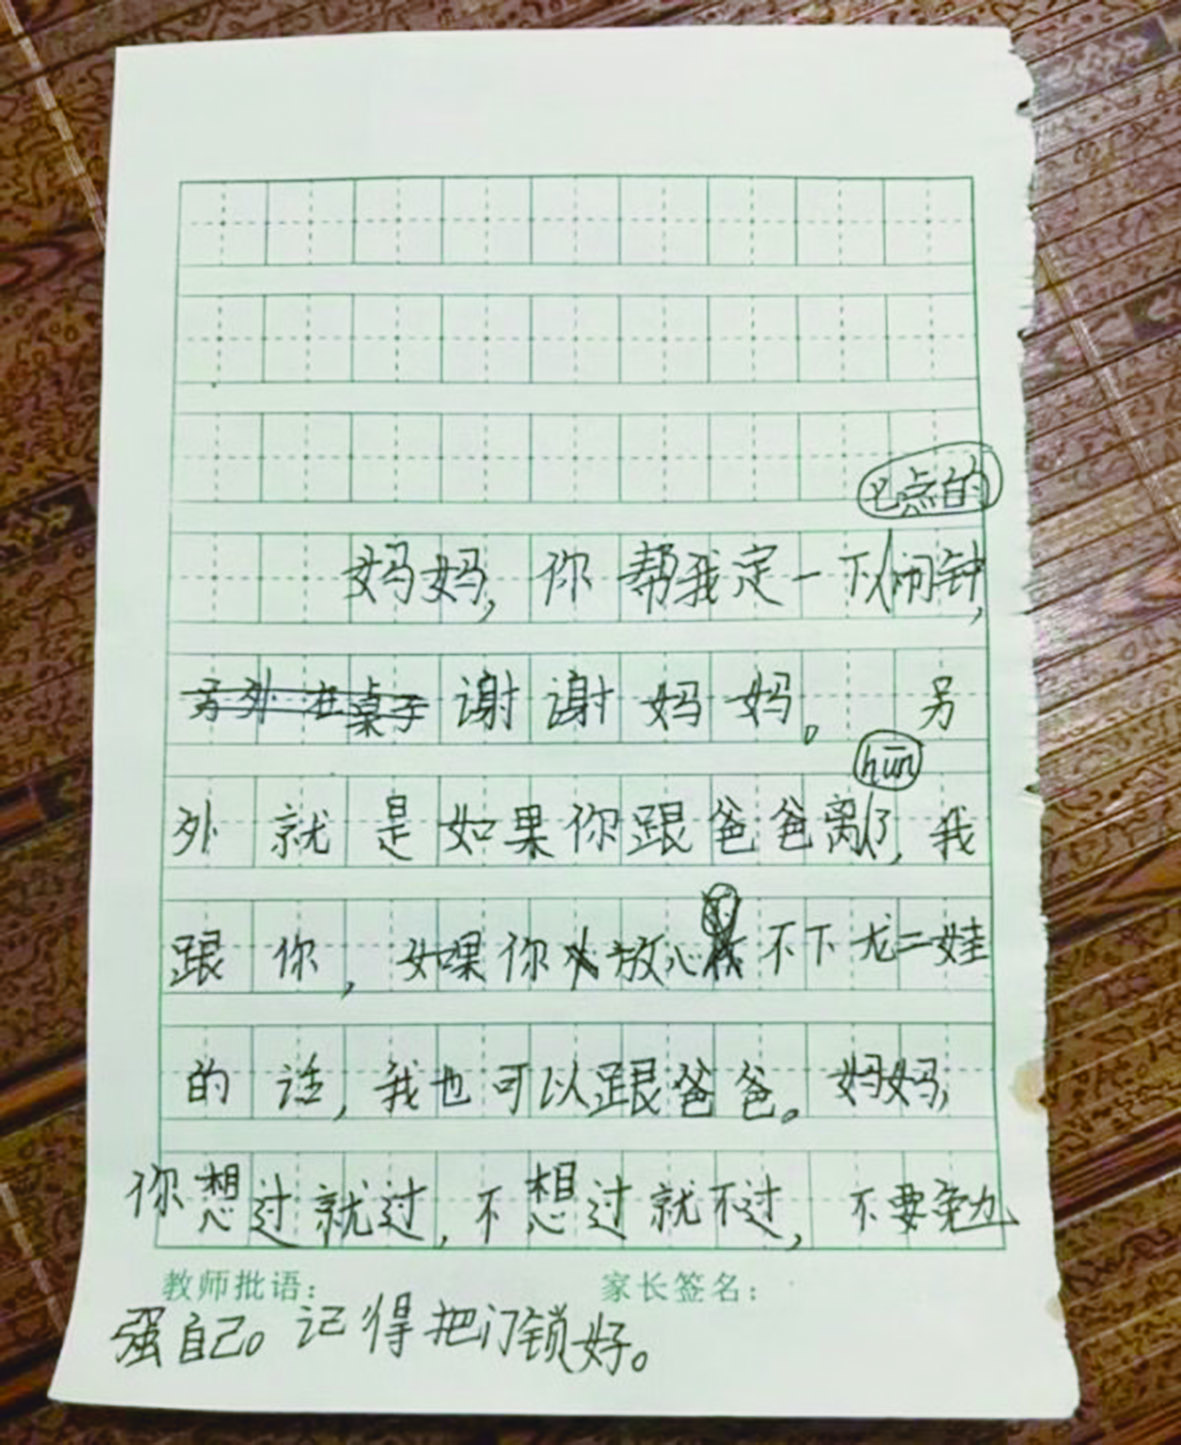 点的
妈妈，你帮我定一下闹钟，
另外在桌子谢谢妈妈。 另
hūn
外就是如果你跟爸爸离了，我
跟你，如果你放心不下龙二娃
的话，我也可以跟爸爸。妈妈，
你想过就过，不想过就不过，不要勉
教师批语： 家长签名：
强自己。记得把门锁好。